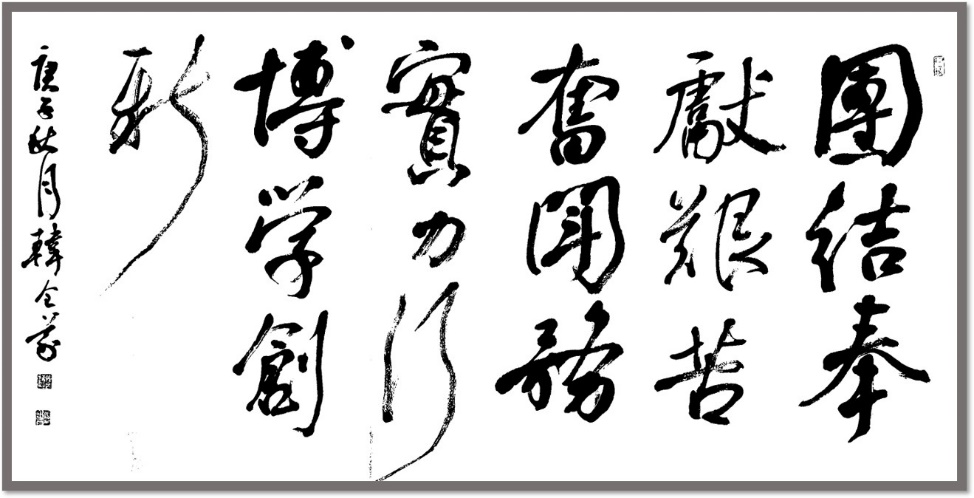 團結奉
獻艱苦
奮鬥務
實力行
博学創
新
庚子秋月韓